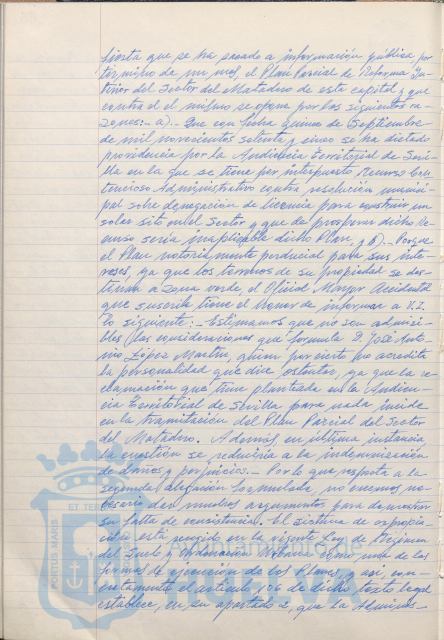 fiesta que se ha sacado a información pública por
término de un mes, el Plan Parcial de Reforma In-
terior del Sector del Matadero de esta capital y que
contra el mismo se opone por las siguientes ra-
zones:- a)- Que con fecha quince de Septiembre
de mil novecientos setenta y cinco se ha dictado
providencia por la Audiencia Territorial de Sevi-
lla en la que se tiene por interpuesto Recurso Con-
tencioso Administrativo contra resolución munici-
pal sobre denegación de licencia para construir un
solar sito en el Sector y que de prosperar dicho Re-
curso sería inaplicable dicho Plan, y b)- Porque
el Plan notoriamente perjudicial para sus inte-
reses, ya que los terrenos de su propiedad se des-
tinan a zona verde el Oficial Mayor Accidental
que suscribe tiene el honor de informar a V.I.
lo siguiente:- Estimamos que no son admisi-
bles las consideraciones que formula D. José Anto-
nio López Martín, quien por cierto no acredita
la personalidad que dice ostentar, ya que la re-
clamación que tiene planteada en la Audien-
cia Territorial de Sevilla para nada incide
en la tramitación del Plan Parcial del Sector
del Matadero. Además, en última instancia,
la cuestión se reduciría a la indemnización
de daños y perjuicios.- Por lo que respecta a la
segunda alegación formulada, no creemos ne-
cesario dar muchos argumentos para demostrar
su falta de consistencia. El sistema de expropia-
ción está recogido en la vigente Ley de Régimen
del Suelo y Ordenación Urbana como una de las
formas de ejecución de los Planes, y así, con-
cretamente el artículo 106 de dicho texto legal
establece, en su apartado 2, que la Adminis-
PORTUS MARIS
ET TER